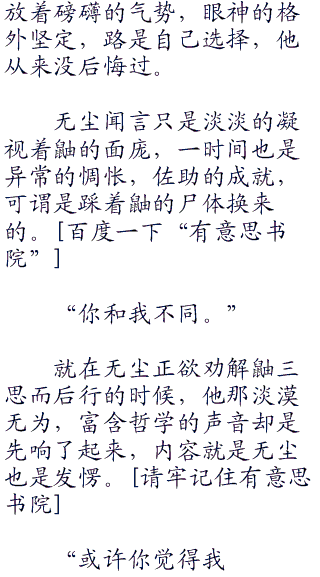 放着磅礴的气势，眼神的格
外坚定，路是自己选择，他
从来没后悔过。
无尘闻言只是淡淡的凝
视着鼬的面庞，一时间也是
异常的惆怅，佐助的成就，
可谓是踩着鼬的尸体换来
的。[百度一下“有意思书
院”]
“你和我不同。”
就在无尘正欲劝解鼬三
思而后行的时候，他那淡漠
无为，富含哲学的声音却是
先响了起来，内容就是无尘
也是发愣。[请牢记住有意思
书院]
“或许你觉得我